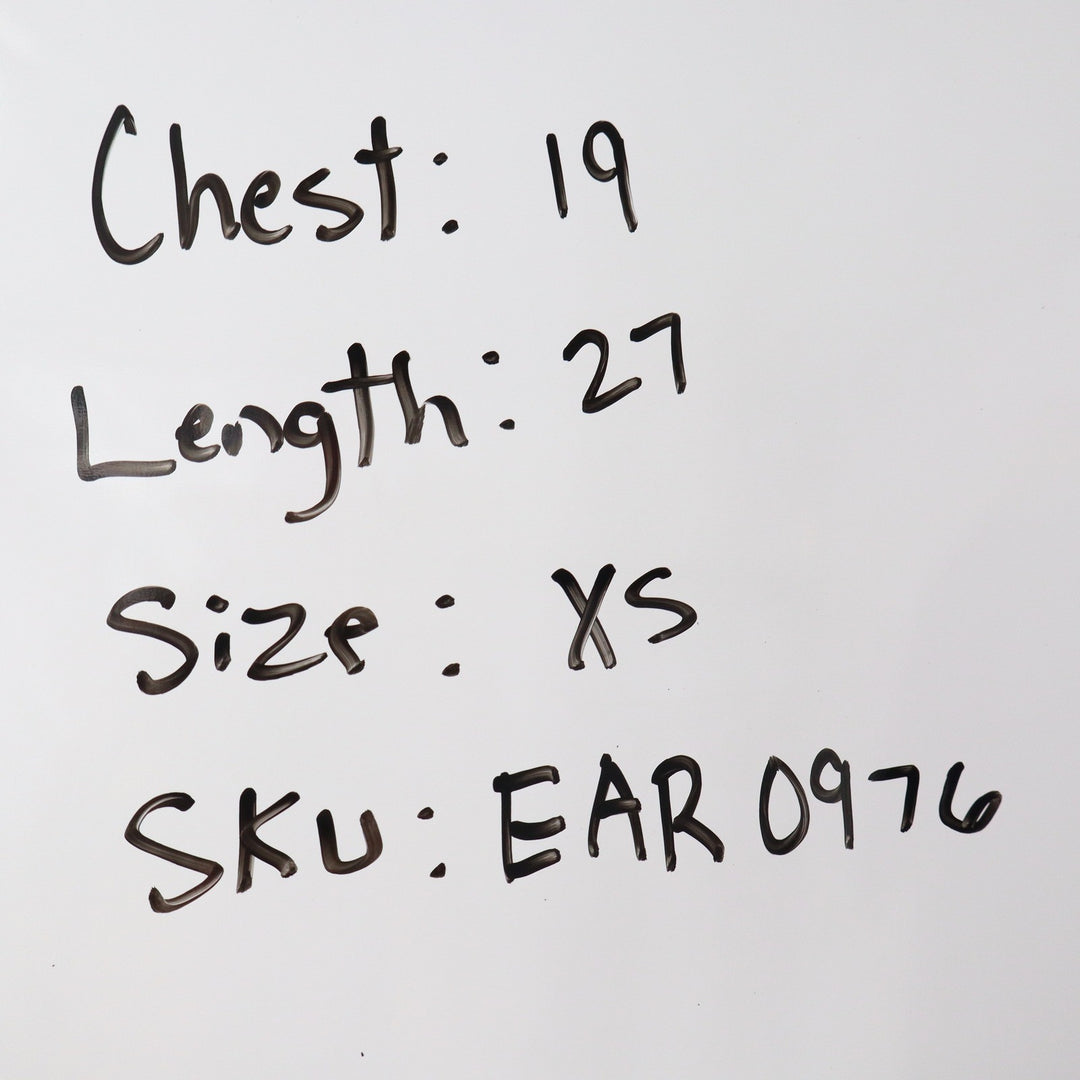 Chest: 19
Length: 27
Size: XS
SKU: EAR 0976